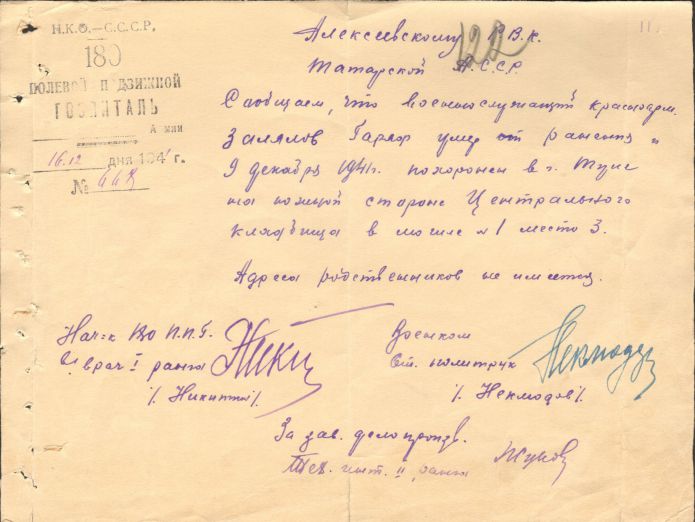 Н.К.О.-С.С.С.Р.
180
ПОЛЕВОЙ ПОДВИЖНОЙ
ГОСПИТАЛЬ
Армии
16.12 дня 1941 г.
№ 668
122
11
Алексеевскому Р.В.К.
Татарской А.С.С.Р.
Сообщаем, что военнослужащий красноарм.
Залялов Гапар умер от ранения и
9 декабря 1941 похоронен в г.
на южной стороне Центрального
кладбища в могиле №1 место 3.
Адреса родственников не имеется.
Нач-к 180 П.П.Г.
врач I ранга
Военком
Ст. политрук
/. Некмодов /.
За зав. делопроизв.
Тех. инт. II ранга
Жуков